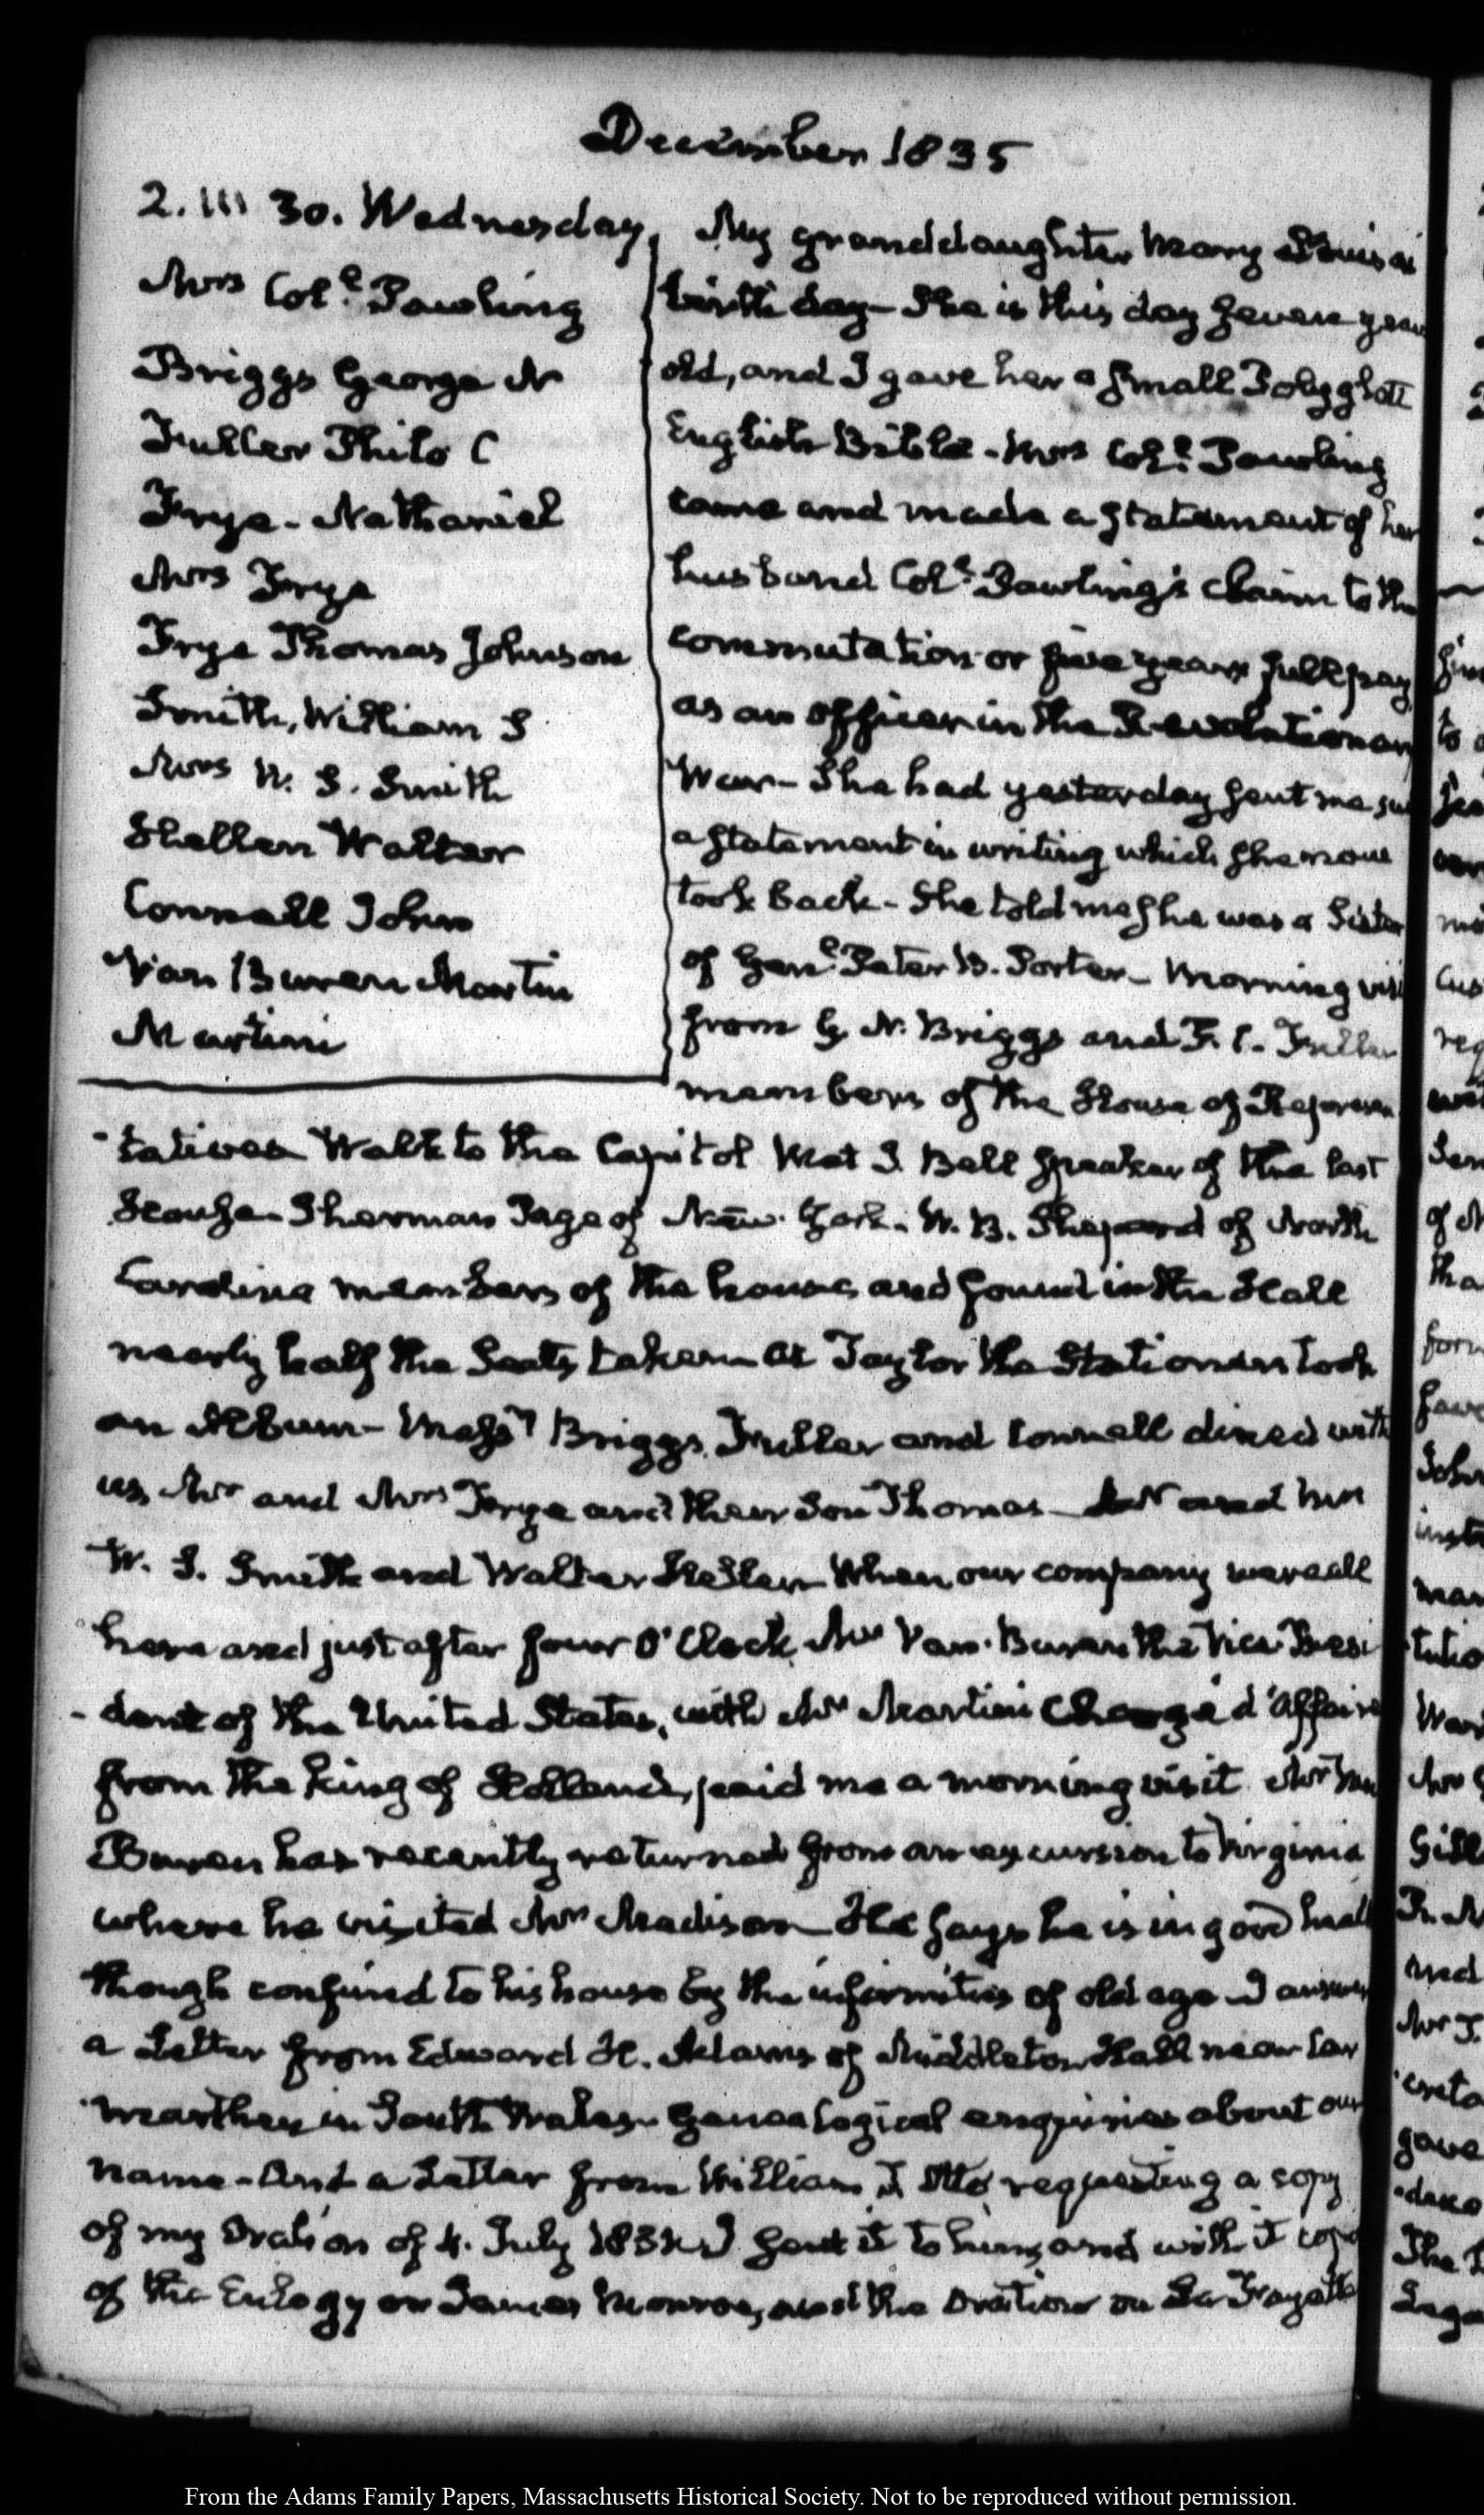 December 1835
2. III 30. Wednesday
Mrs Col.l Pawling
Briggs George N
Fuller Philo C
Frye - Nathaniel
Mrs Frye
Frye Thomas Johnson
Smith, William S
Mrs W. S. Smith
Hellen Walter
Connell John
Van Buren Martin
Martini
My granddaughter Mary Louisa's
birth day - She is this day seven years
old, and I gave her a small Polyglott
English Bible - Mrs Col.l Pawling
came and made a statement of her
husband Col.l Pawling's claim to the
commutation or five years full pay
as an officer in the Revolutionary
War - She had yesterday sent me
a statement in writing which she now
took back - She told me she was a Sister
of Gen.l Peter B. Porter - Morning visit
from G. N. Briggs and P. C. Fuller
members of the House of Represen
-tatives Walk to the Capitol Met J. Bell Speaker of the last
House - Sherman Page of New-York - W. B. Shepard of North
Carolina members of the house and found in the Hall
nearly half the Seats taken - At Taylor the Stationers took
an Album - Mess.rs Briggs, Fuller and Connell dined with
us, Mr and Mrs Frye and their Son Thomas - Mr and Mrs
W. S. Smith and Walter Hellen When our company were all
here and just after four O'Clock Mr Van Buren the Vice Presi
-dent of the United States, with Mr Martini Chargé d'Affaires
from the King of Holland, paid me a morning visit Mr Van
Buren has recently returned from an excursion to Virginia
where he visited Mr Madison - He says he is in good health
though confined to his house by the infirmities of old age - I answered
a Letter from Edward H. Adams of Middleton Hall near Car
-marthen in South Wales - Genealogical enquiries about our
name - And a Letter from William J Otis requesting a copy
of my Oration of 4. July 1831 - I sent it to him, and with it copies
of the Eulogy on James Monroe, and the Oration on La Fayette
From the Adams Family Papers, Massachusetts Historical Society. Not to be reproduced without permission.